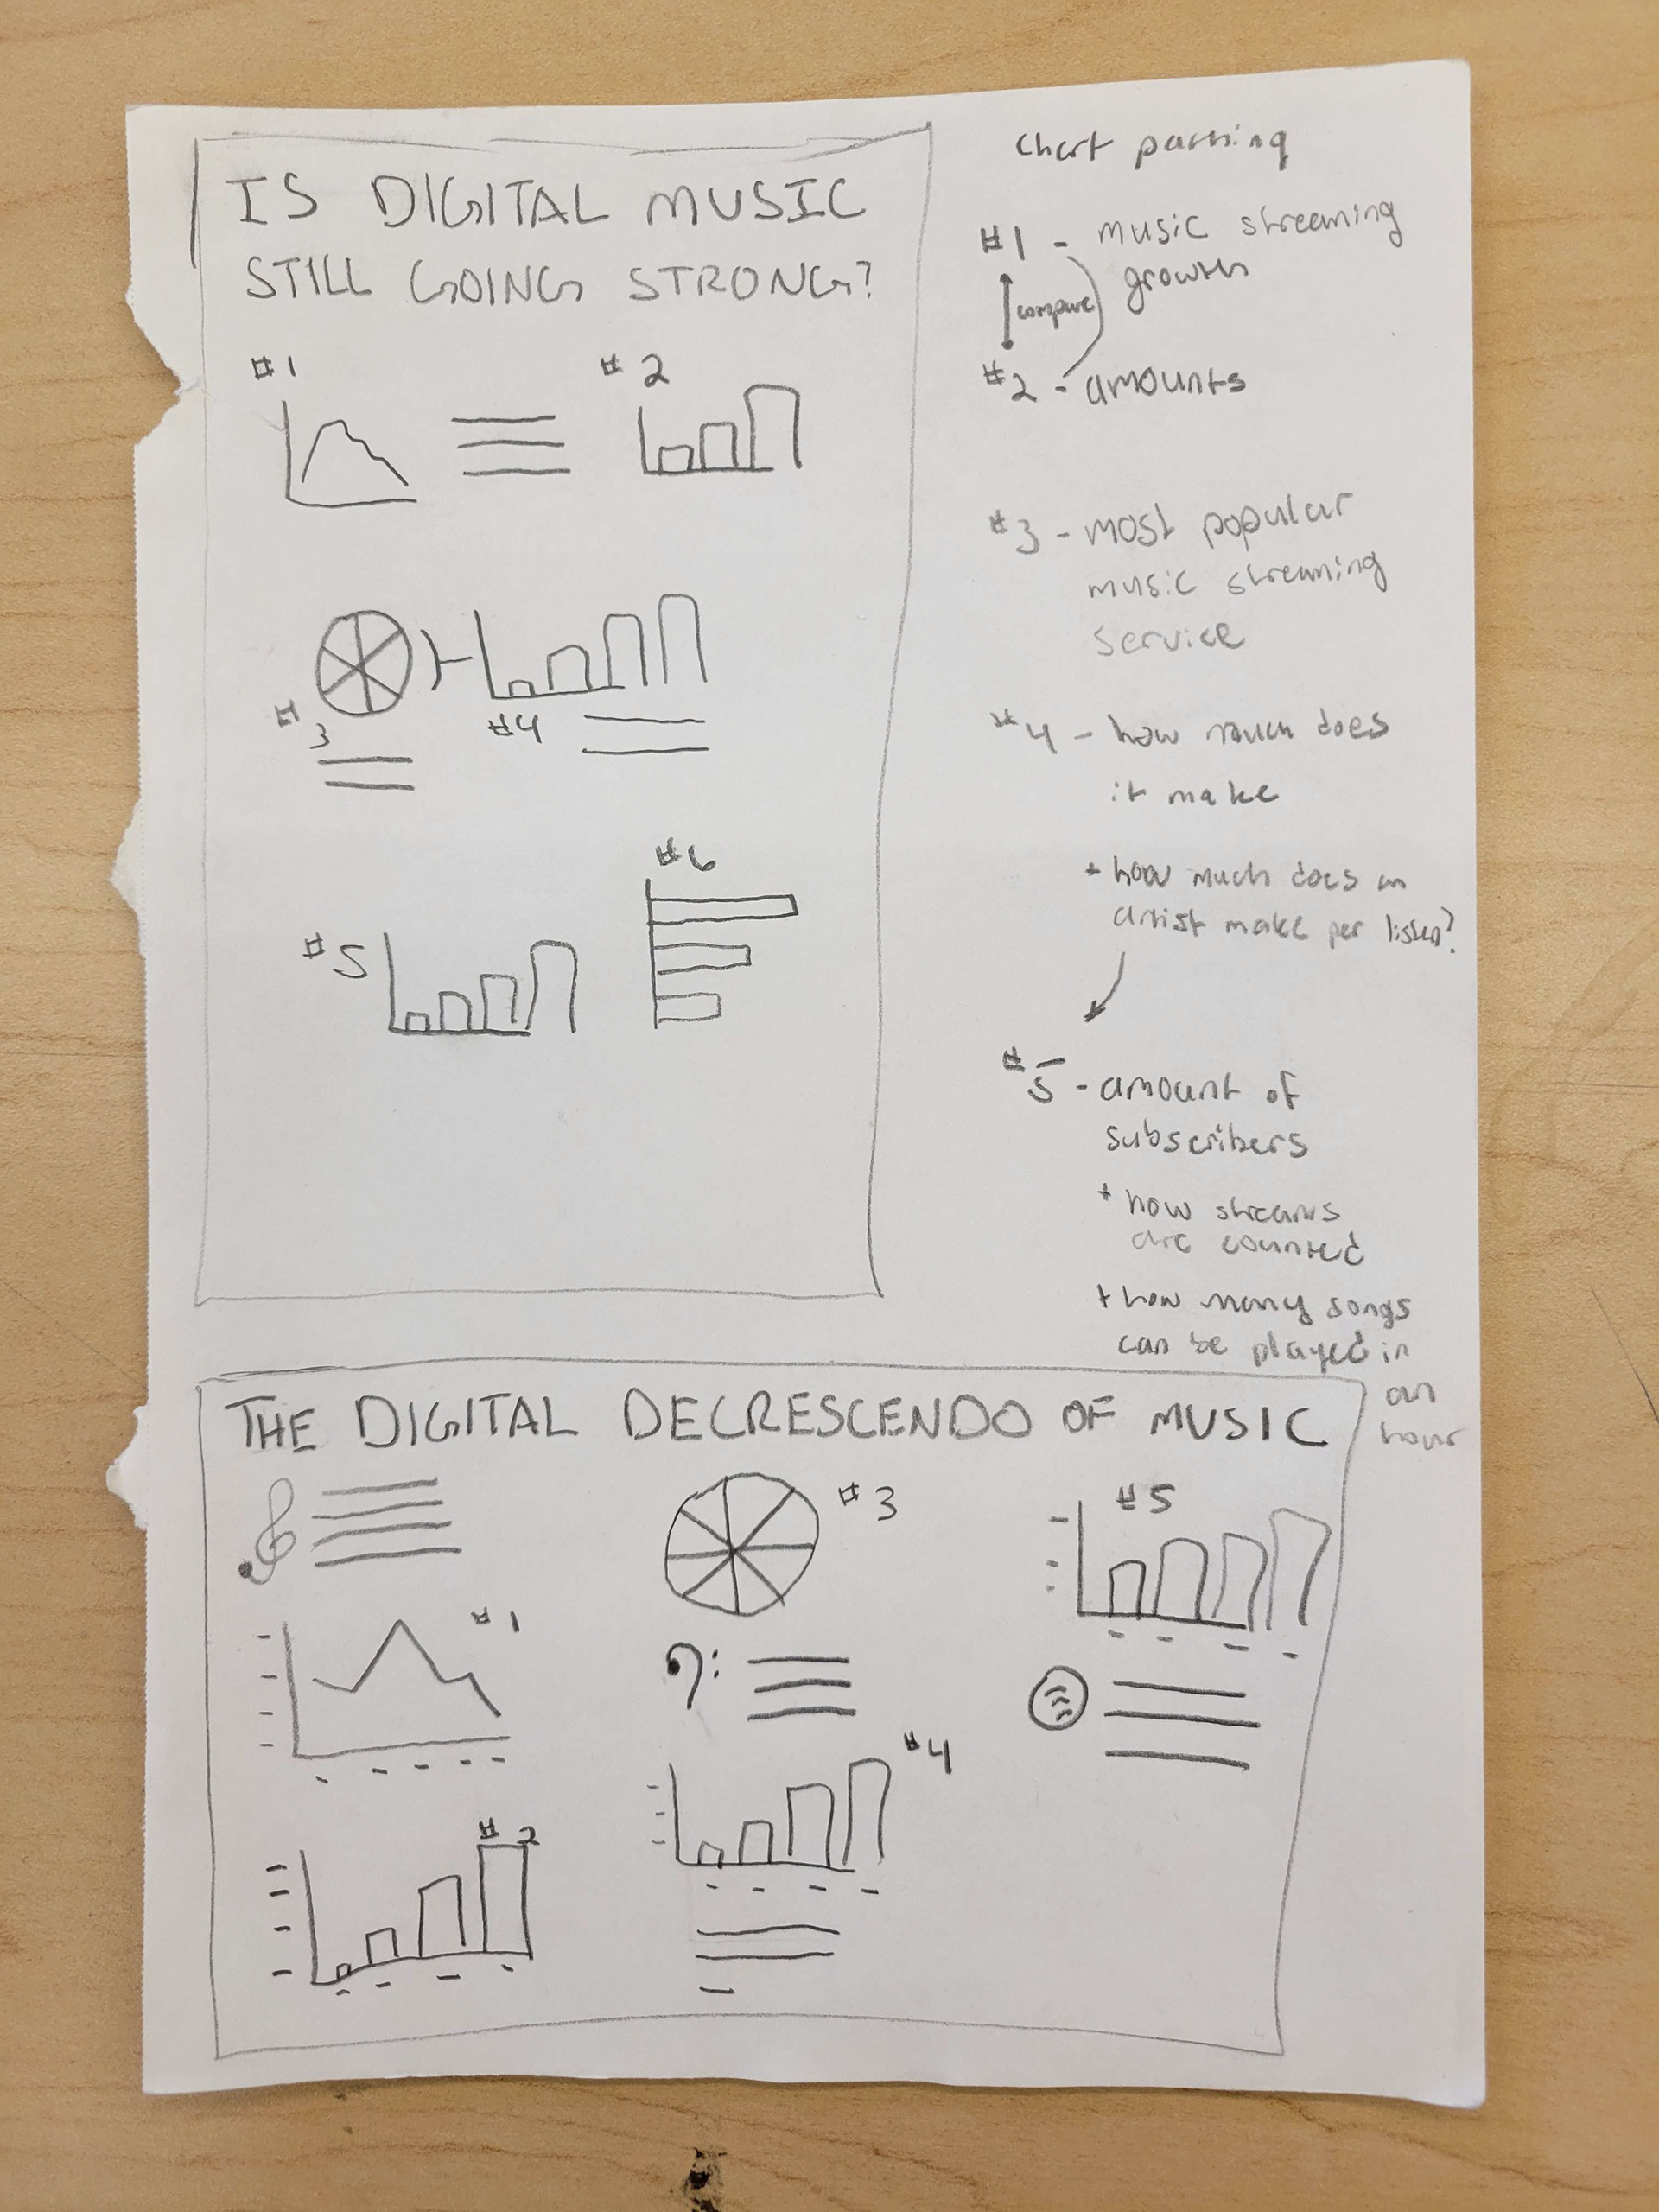 IS DIGITAL MUSIC
STILL GOING STRONG?
#1
#2
#3
#4
#5
#6
chart parsing
#1 - music streaming
growth
compare
#2 - amounts
#3 - most popular
music streaming
service
#4 - how much does
it make
+ how much does an
artist make per listen?
#5 - amount of
subscribers
+ how streams
are counted
+ how many songs
can be played in
an
hour
THE DIGITAL DECRESCENDO OF MUSIC
#3
#5
#1
#4
#2